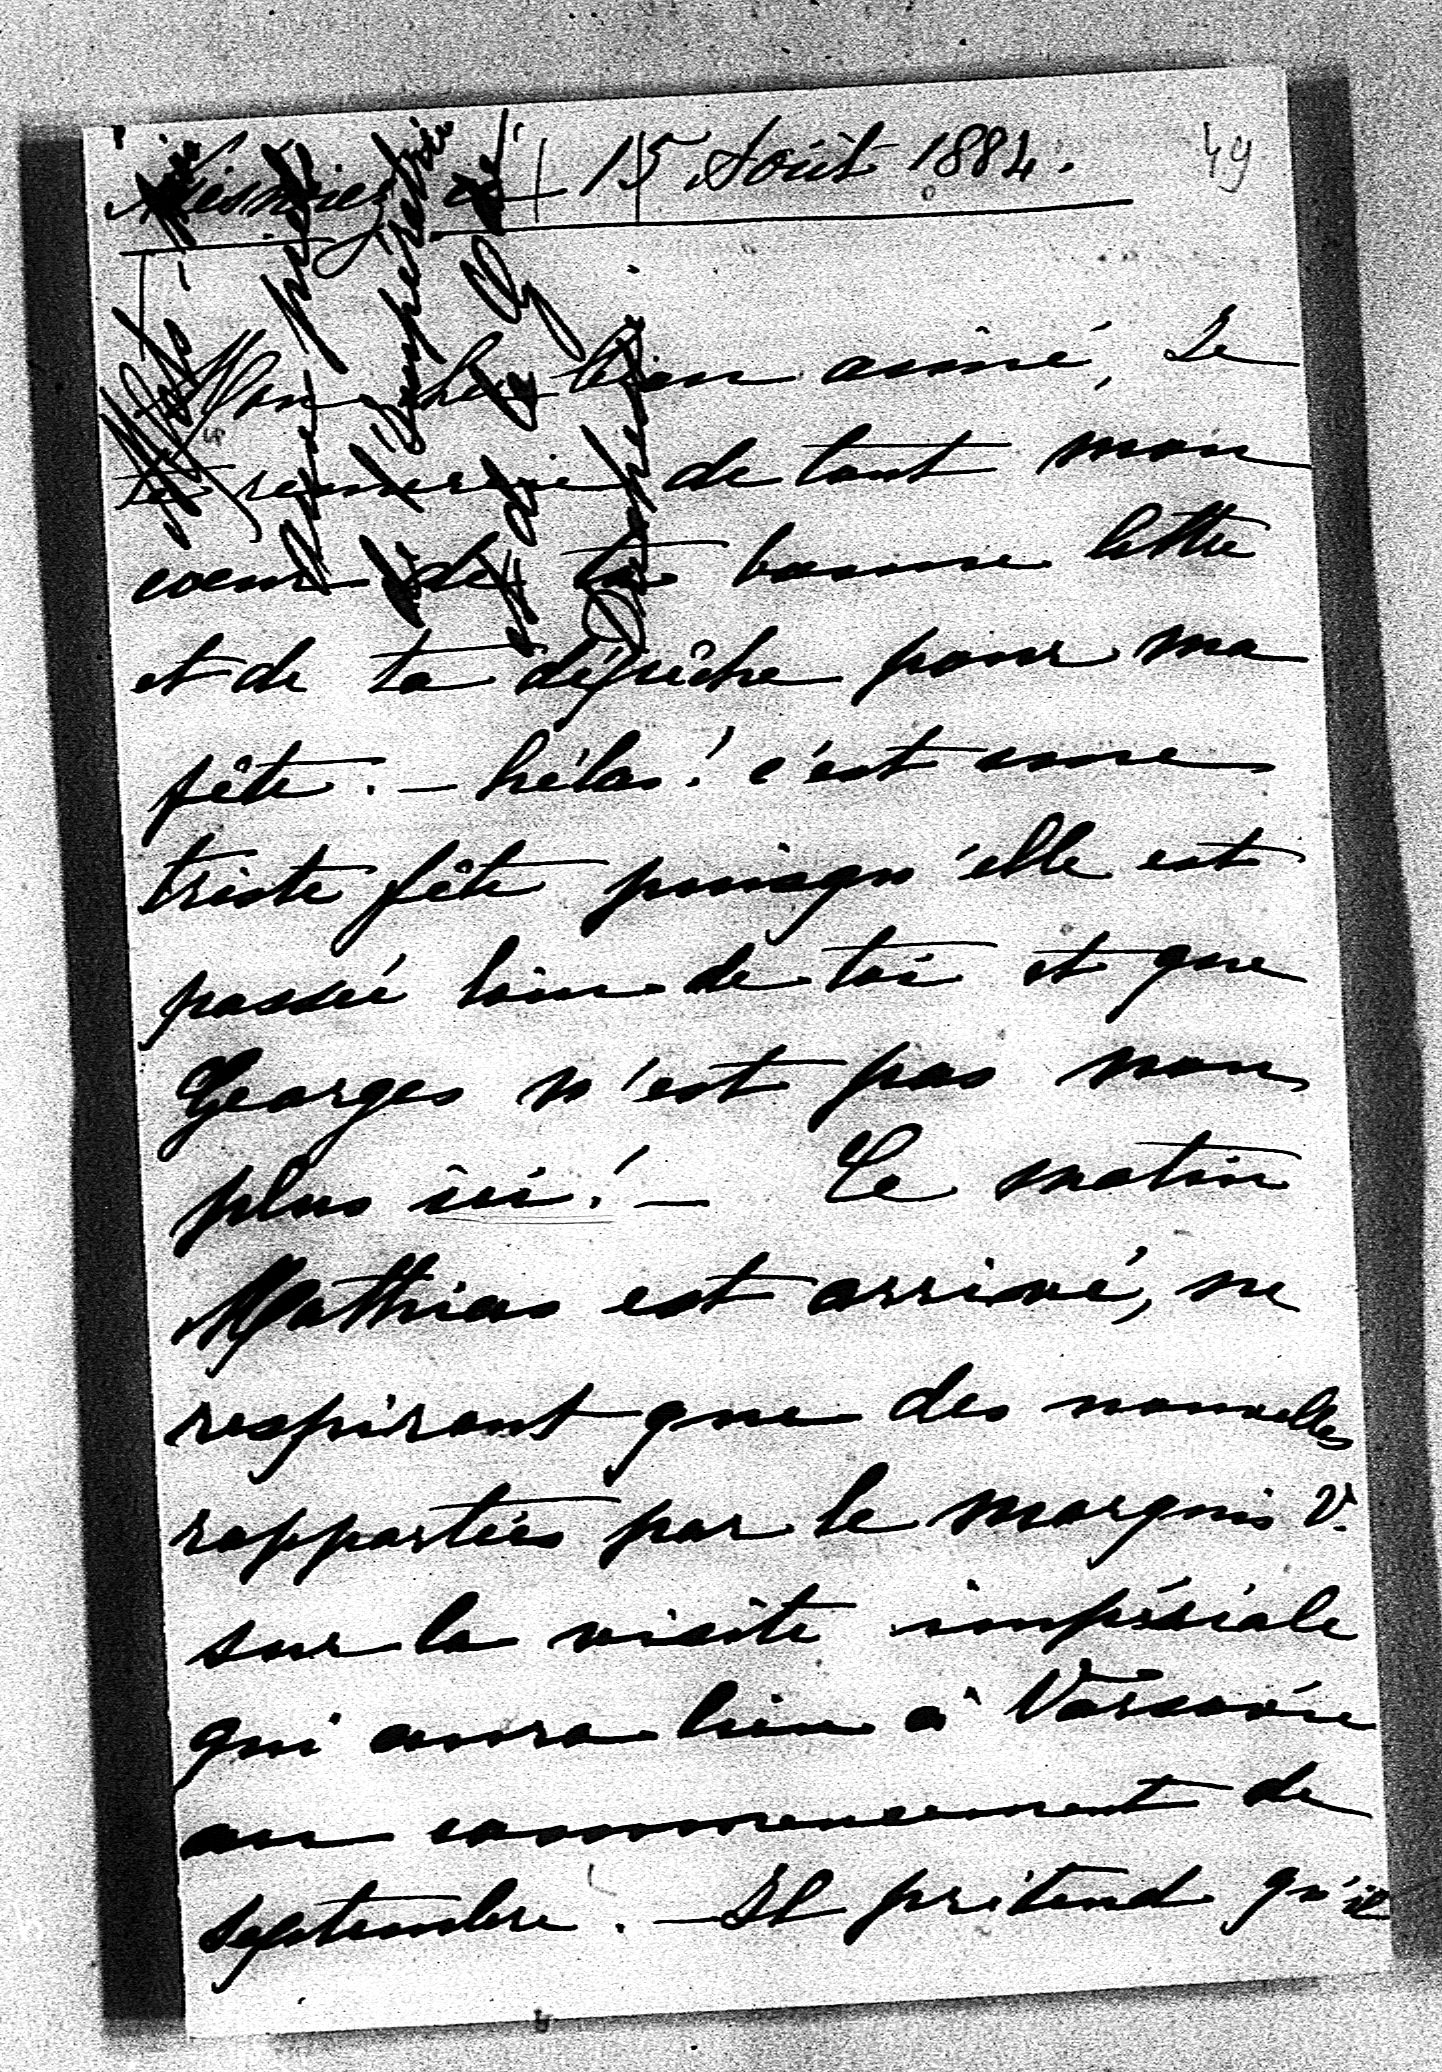 Niesmierz 15 Août 1884.
49
Mon cher bien aimé, Je
te remercie de tout mon
coeur de ta bonne lettre
et de ta dépêche pour ma
fête. — hélas! c'est une
triste fête puisqu'elle est
passée loin de toi et que
Georges n'est pas non
plus ici! — Ce matin
Mathias est arrivé, ne
respirant que des nouvelles
rapportées par le marquis V.
sur la visite impériale
qui aura lieu à Varsovie
au commencement de
septembre. — Il prétend qu'il